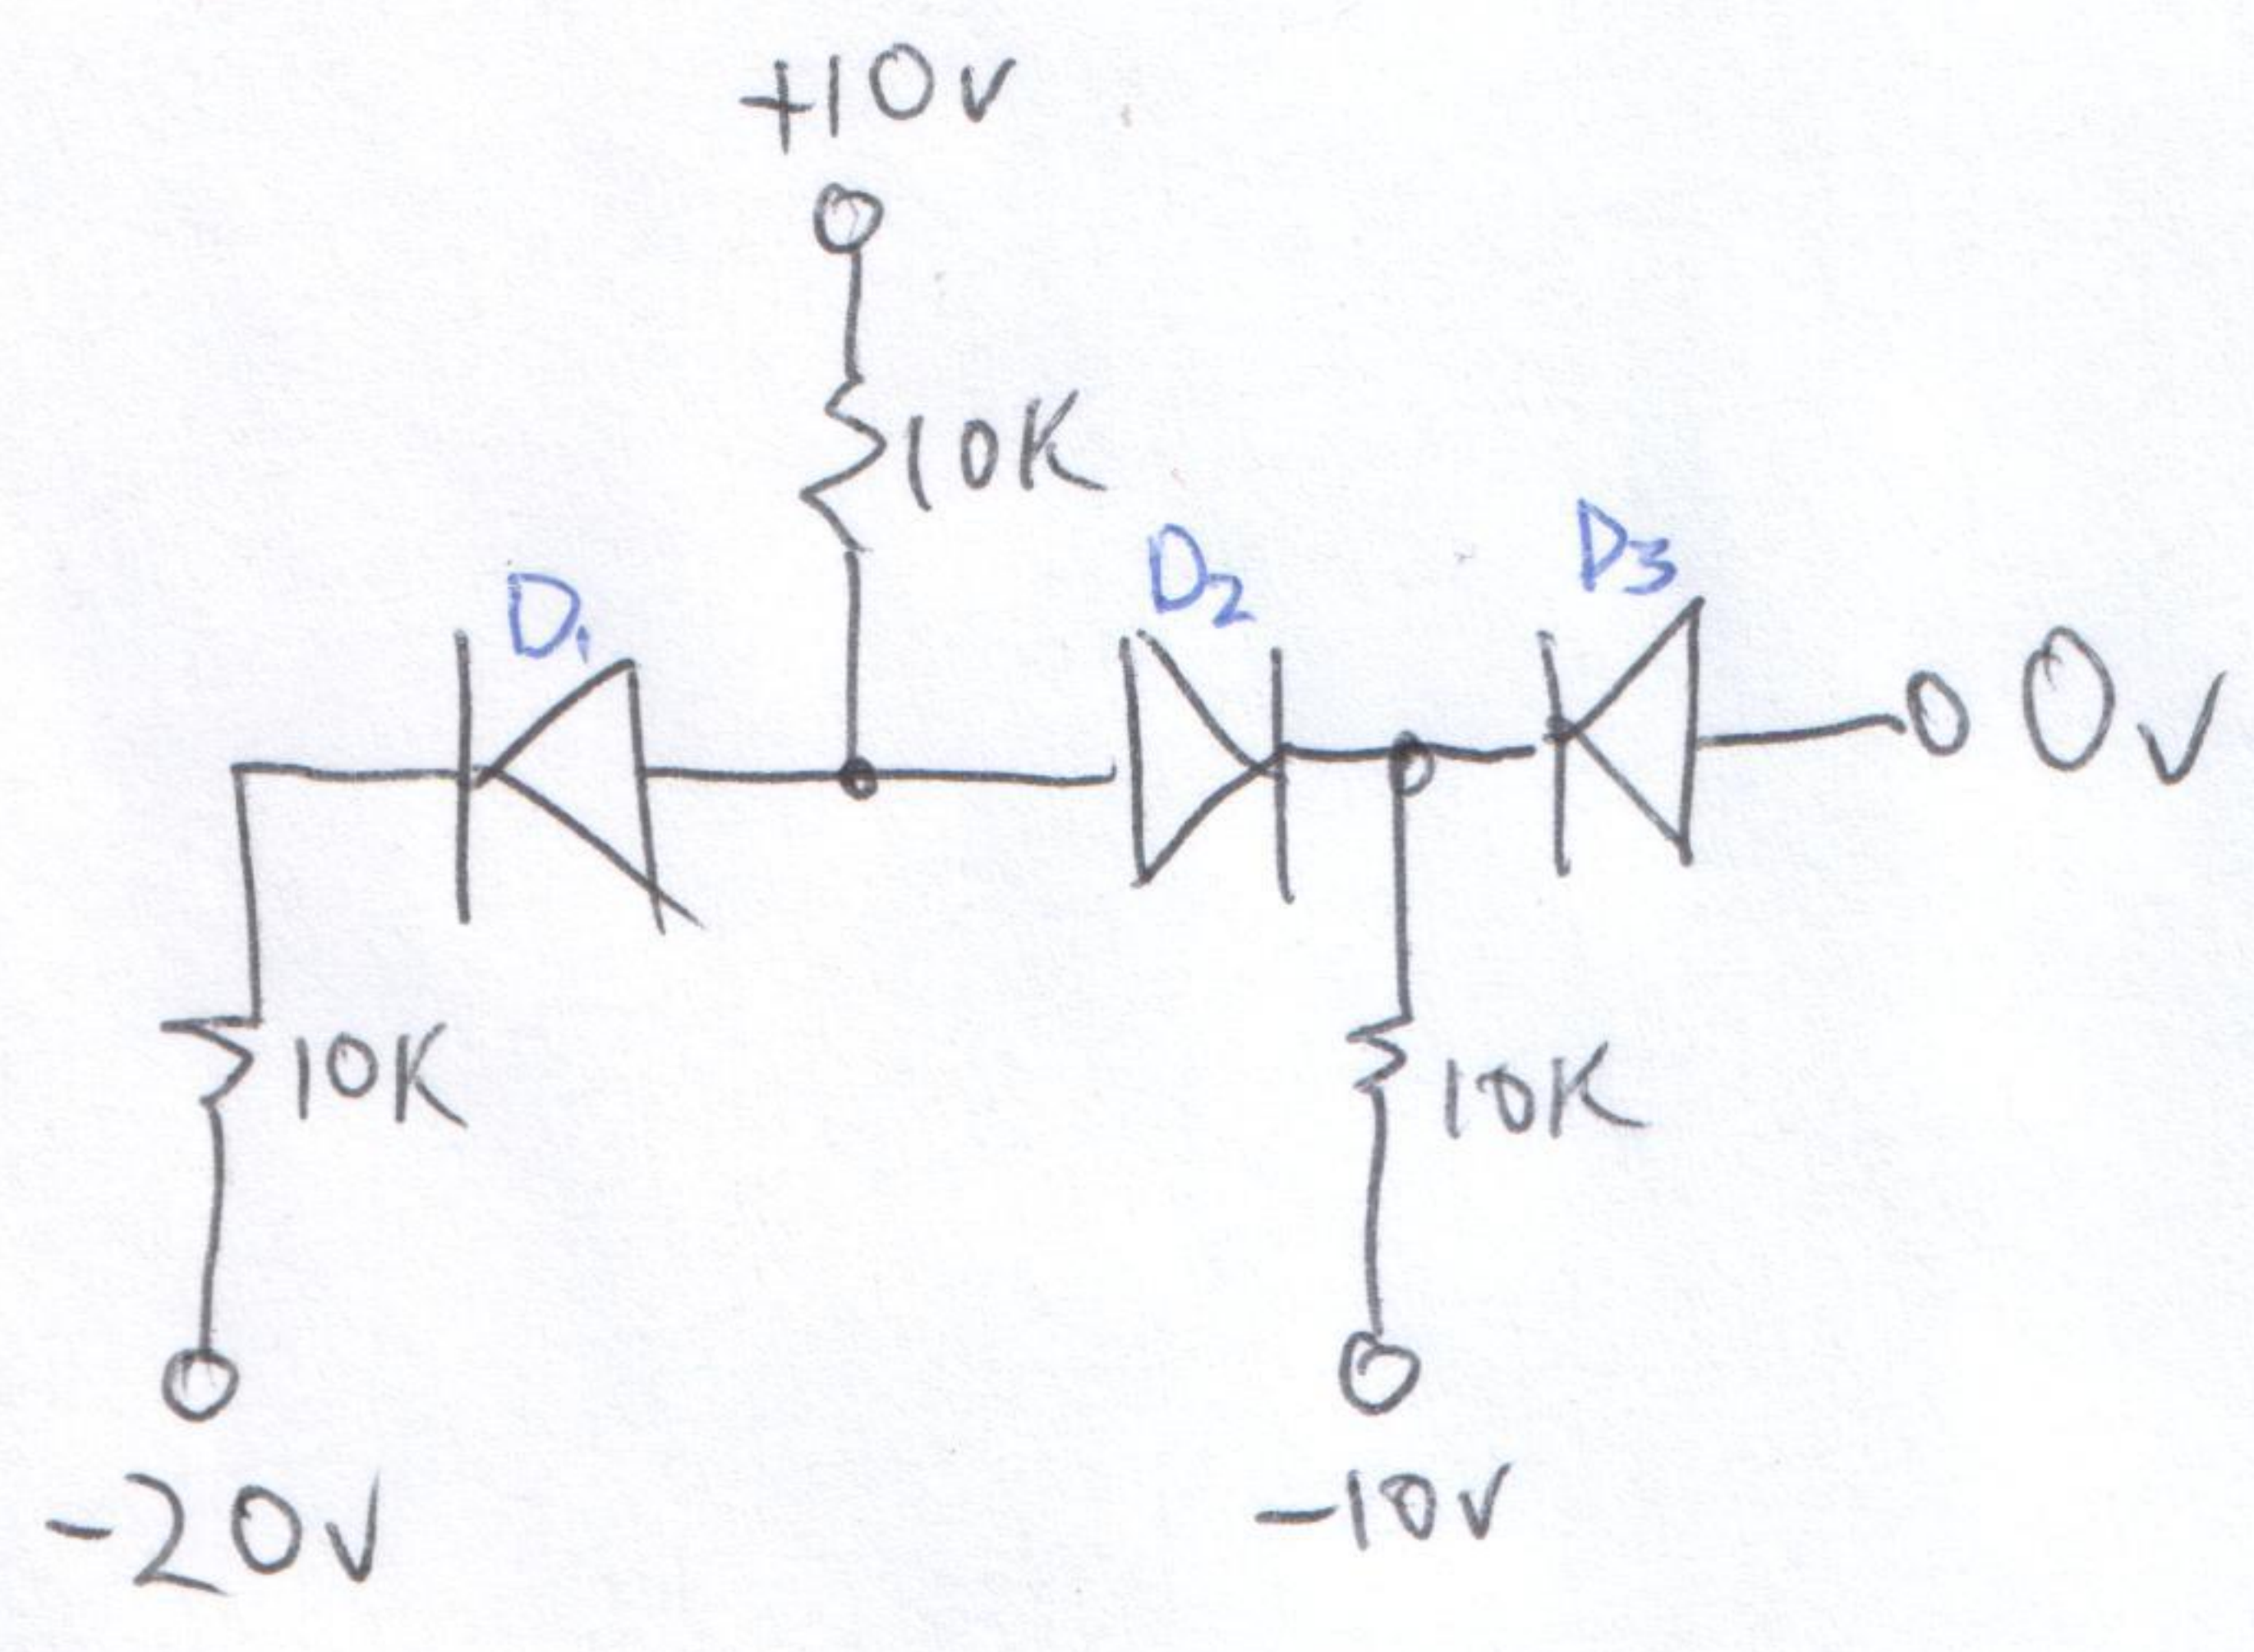 +10v
10K
D1
D2
D3
0v
10K
10K
-20v
-10v